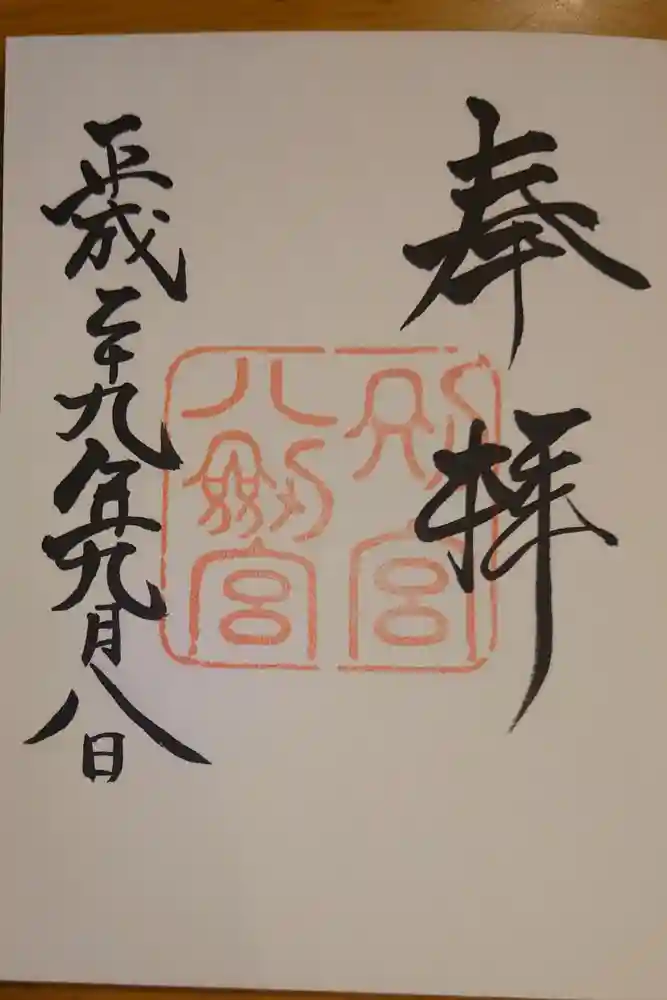 奉拝
別宮
八劔宮
平成二十九年九月八日